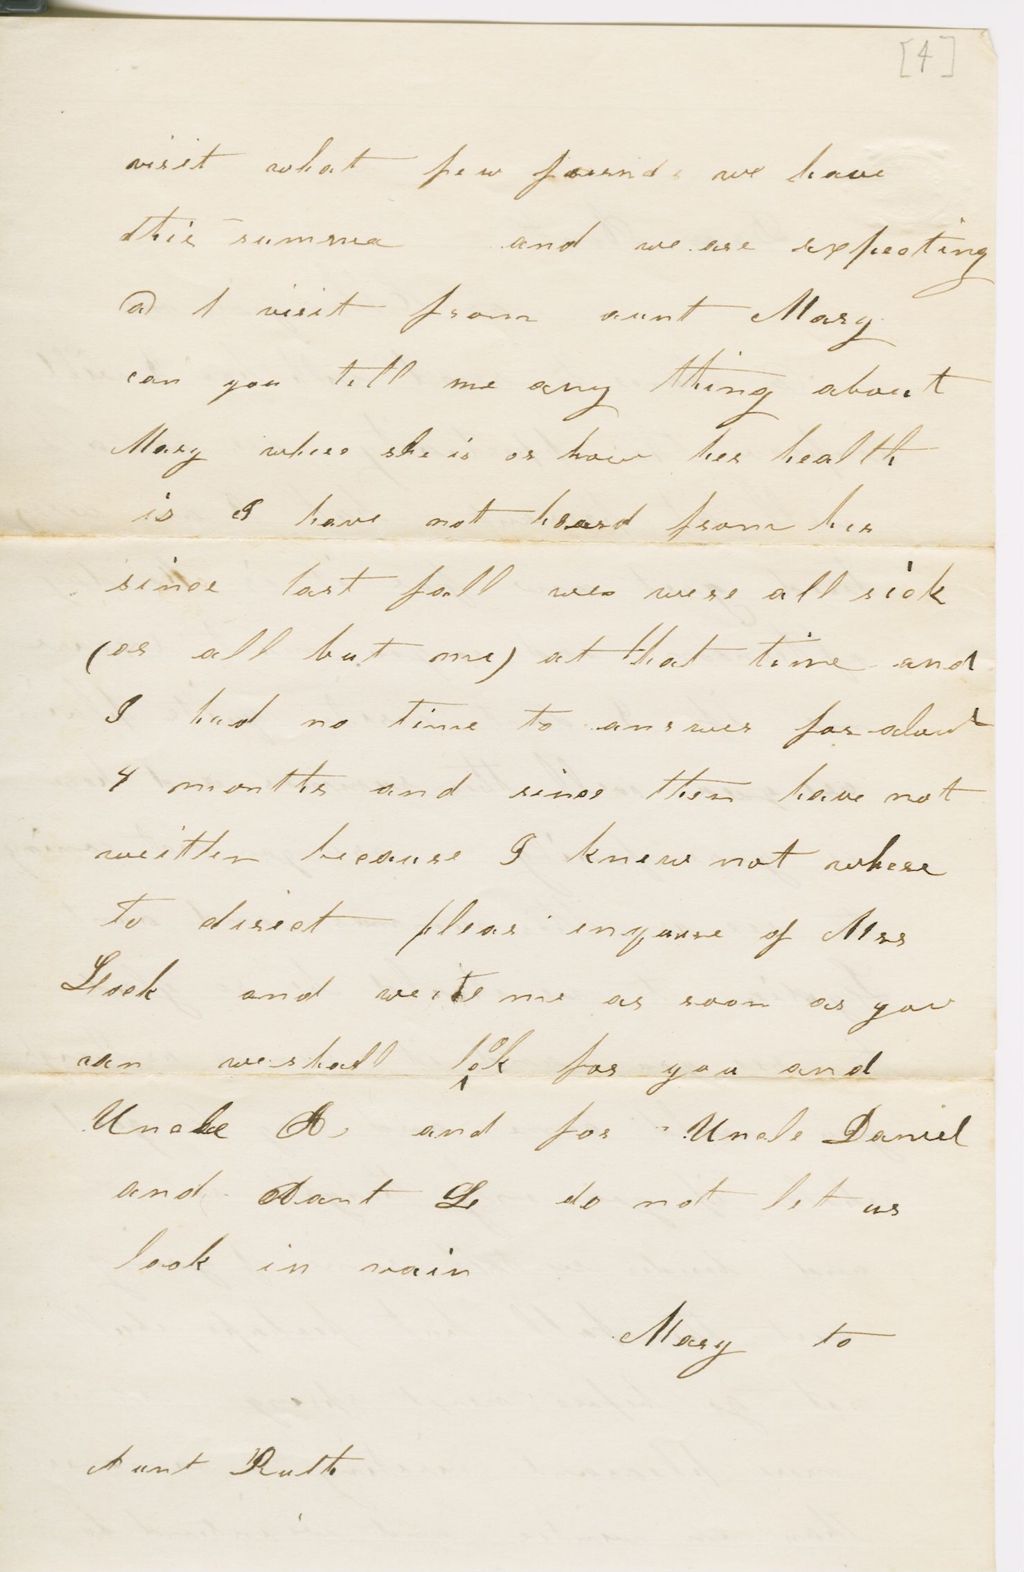 [4]
visit what few freinds we have
this summer and we are expecting
a visit from aunt Mary
can you tell me any thing about
Mary where she is or how her health
is I have not heard from her
since last fall we were all sick
(or all but me) at that time and
I had no time to answer for about
4 months and since then have not
written because I knew not where
to direct pleas inquire of Mrs
and write me as soon as you
can we shall look for you and
Uncle A. and for Uncle Daniel
and Aunt L do not let us
look in vain
Mary to
Aunt Ruth